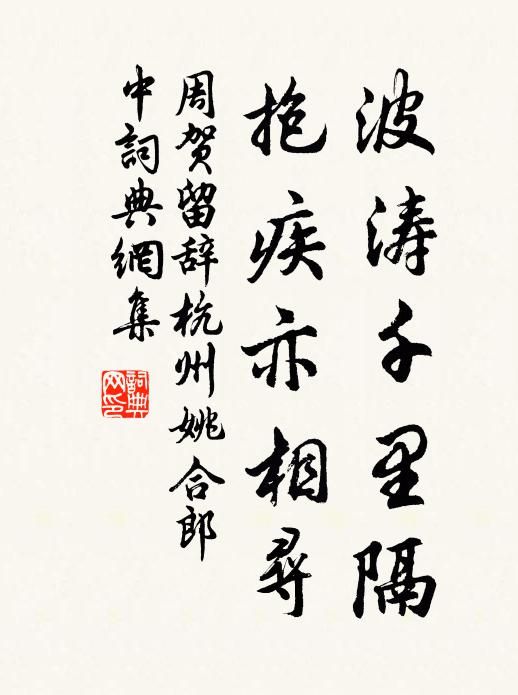 波涛千里隔
抱疾亦相尋
周贺留辞杭州姚合郎
中詞典網集
詞典网印